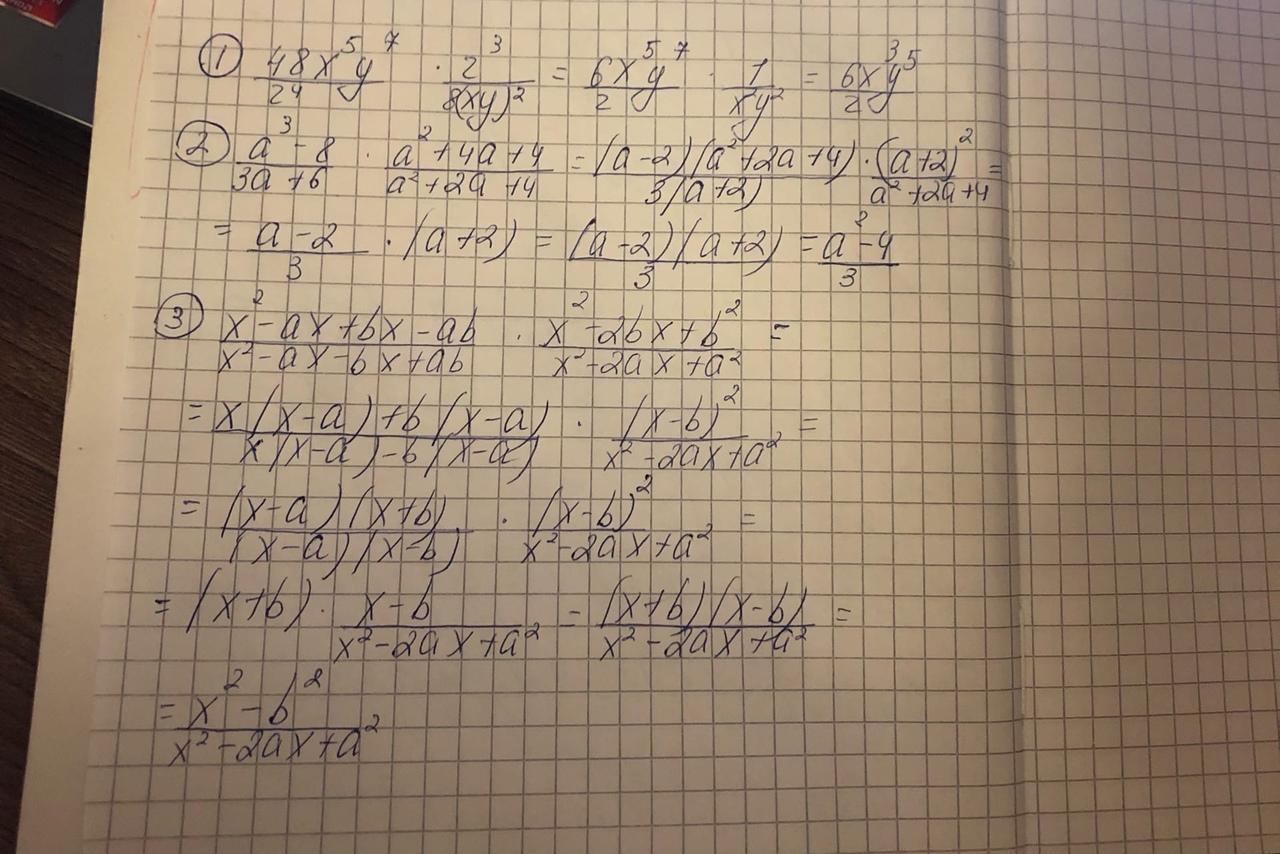 ① 48x⁵y⁷/z⁴ · z³/8(xy)² = 6x⁵y⁷/z · 1/x²y² = 6x³y⁵/z
② a³-8/3a+6 · a²+4a+4/a²+2a+4 = (a-2)(a²+2a+4)/3(a+2) · (a+2)²/a²+2a+4 =
= a-2/3 · (a+2) = (a-2)(a+2)/3 = a²-4/3
③ x²-ax+bx-ab/x²-ax-bx+ab · x²-2bx+b²/x²-2ax+a² =
= x(x-a)+b(x-a)/x(x-a)-b(x-a) · (x-b)²/x²-2ax+a² =
= (x-a)(x+b)/(x-a)(x-b) · (x-b)²/x²-2ax+a² =
= (x+b) · x-b/x²-2ax+a² = (x+b)(x-b)/x²-2ax+a² =
= x²-b²/x²-2ax+a²